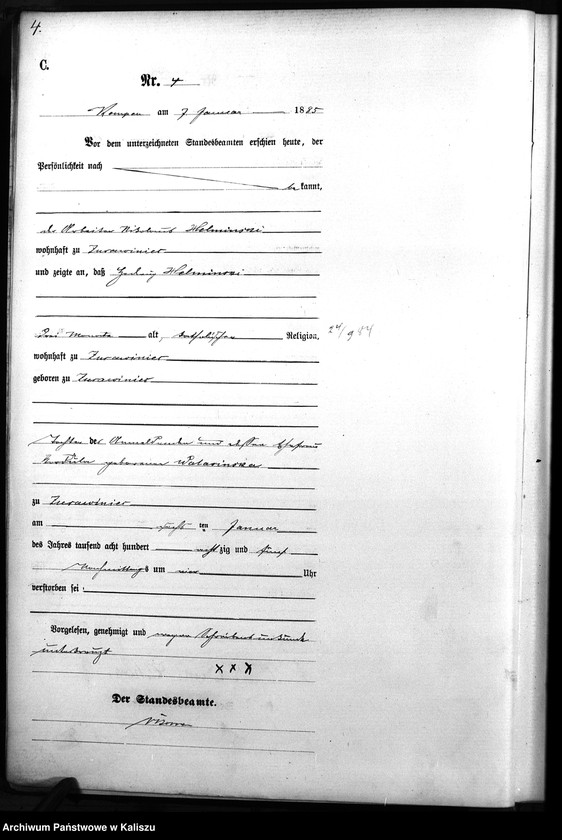 4.
C.
Nr. 4
Kempen am 7 Januar 1885
Vor dem unterzeichneten Standesbeamten erschien heute, der
Persönlichkeit nach
bekannt,
der Arbeiter Helminski
wohnhaft zu Zurawiniec
und zeigte an, daß Hedwig Helminski
Drei Monate alt, katholischer Religion,
24/9 84
wohnhaft zu Zurawiniec
geboren zu Zurawiniec
Tochter des und dessen Ehefrau
geborenen
zu Zurawiniec
am ten Januar
des Jahres tausend acht hundert achtzig und fünf
Nachmittags um vier Uhr
verstorben sei
Vorgelesen, genehmigt und wegen Schreibensunkunde
unterkreuzt
x x x
Der Standesbeamte.
Archiwum Państwowe w Kaliszu